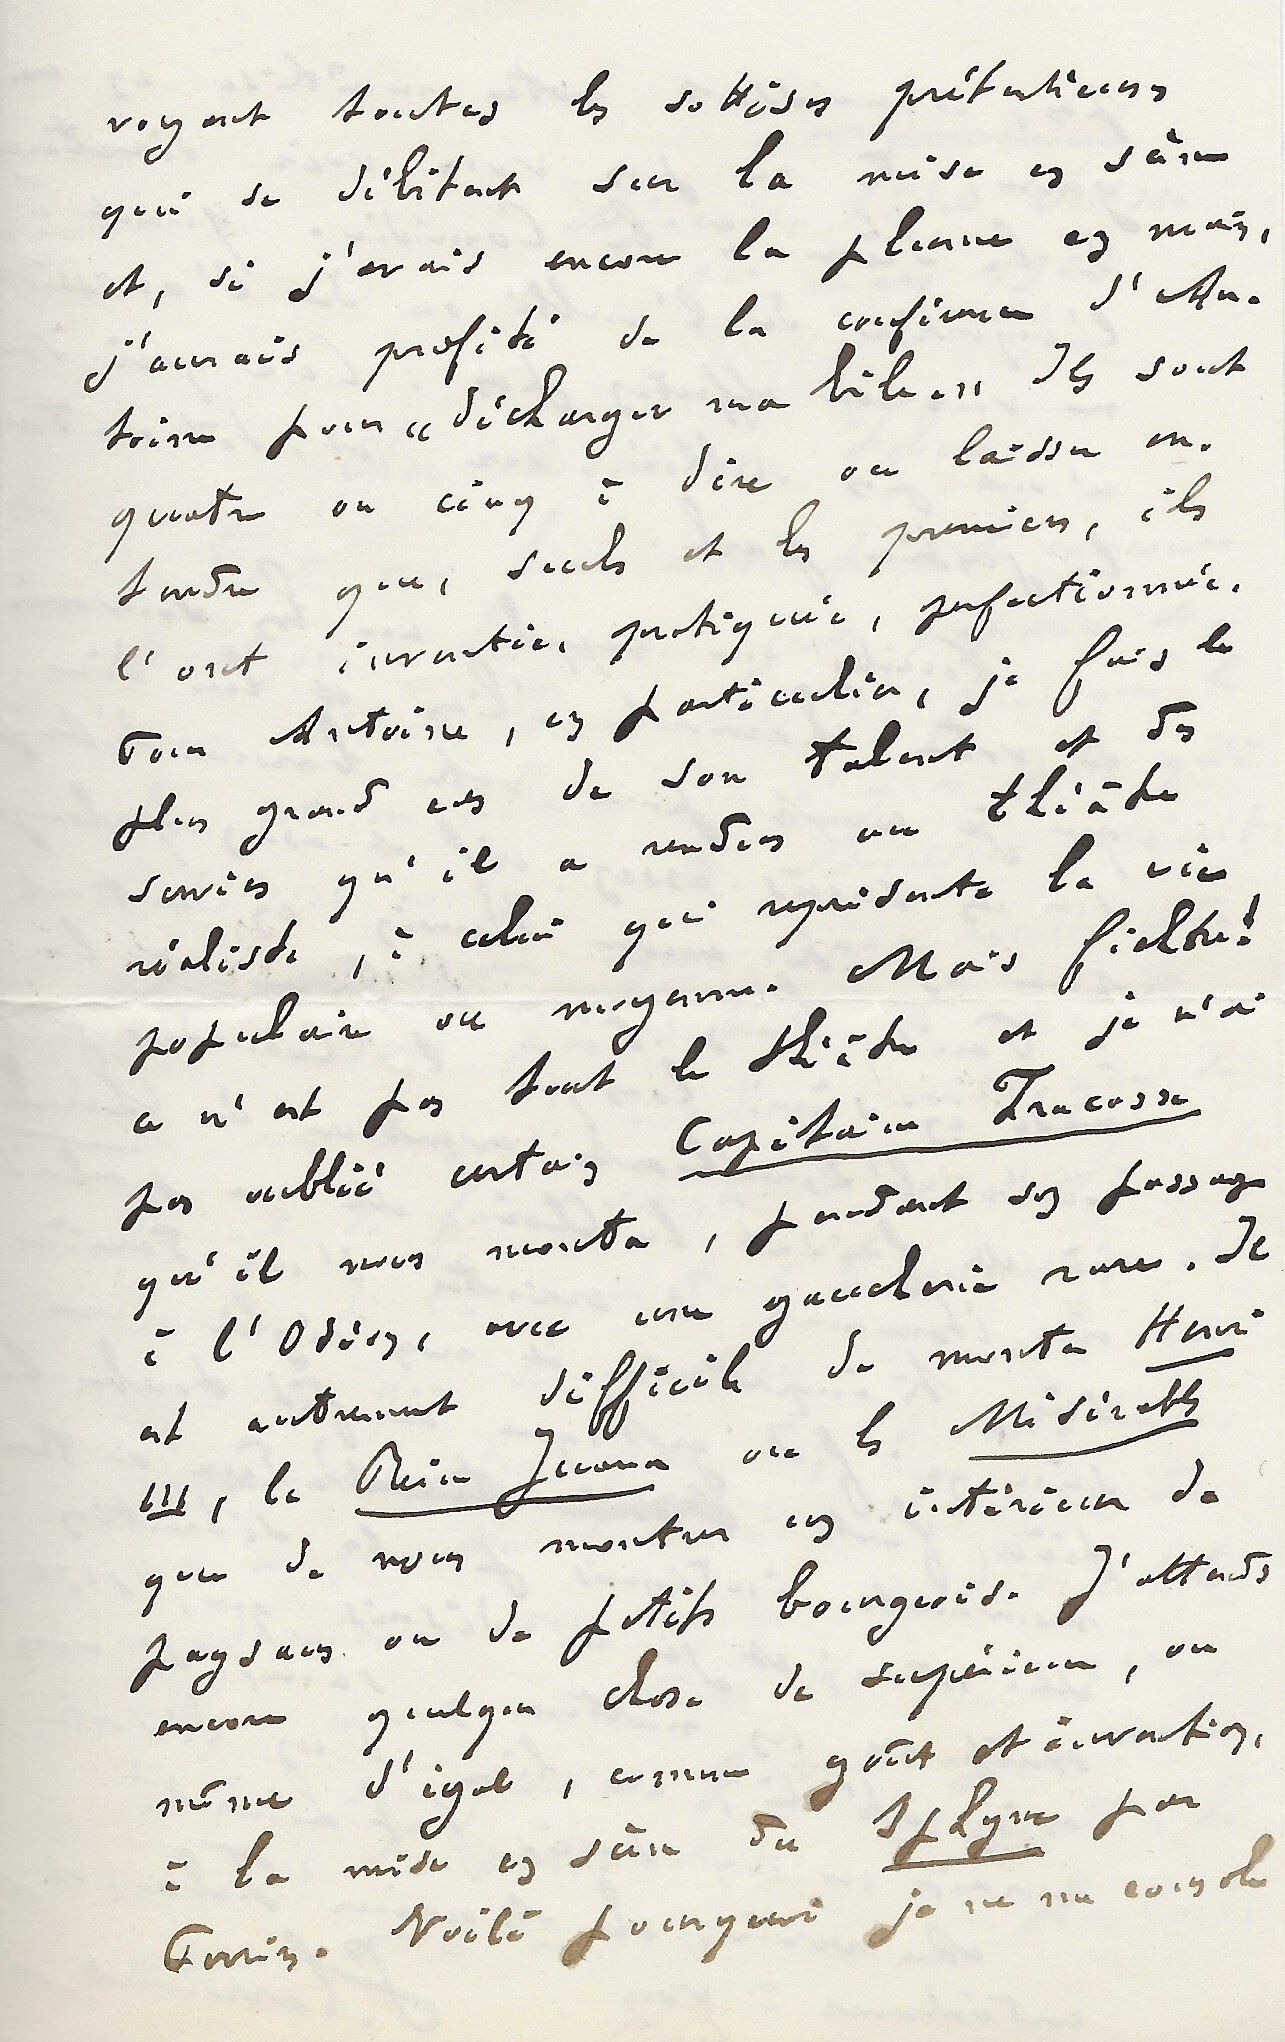 voyant toutes les sottises prétentieuses
qui se débitent sur la mise en scène
et, si j'avais encore la plume en main,
j'aurais profité de la conférence d'An-
toine pour « décharger ma bile. » Ils sont
quatre ou cinq à dire ou laisser en-
tendre que, seuls et les premiers, ils
l'ont inventée, pratiquée, perfectionnée.
Pour Antoine, en particulier, je fais le
plus grand cas de son talent et des
services qu'il a rendus au théâtre
réaliste, à celui qui représente la vie
populaire ou moyenne. Mais fichtre!
ce n'est pas tout le théâtre et je n'ai
pas oublié certain Capitaine Fracasse
qu'il nous monta, pendant son passage
à l'Odéon, avec une gaucherie rare. Il
est autrement difficile de monter Henri
III, la Reine Juana ou les Misérables
que de nous montrer un intérieur de
paysans ou de petits bourgeois. J'attends
encore quelque chose de supérieur, ou
même d'égal, comme goût et invention,
à la mise en scène du Sphynx par
Perrin. Voilà pourquoi je ne me console